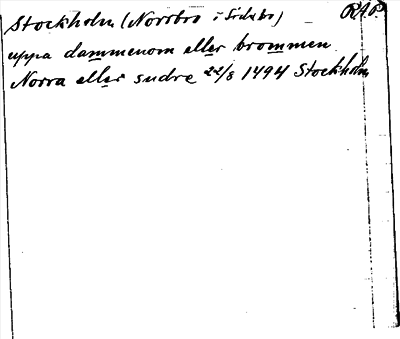 Stockholm (Norrbro i Söderbo) RAP.
uppa dammenom eller brommen
Norra eller sudre 22/8 1494 Stockholm